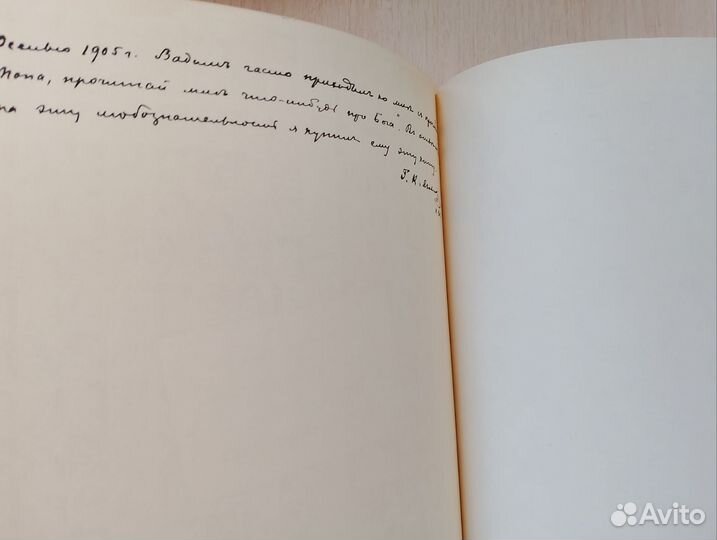 Осенью 1905 г. Вадимъ часто приходилъ ко мнѣ и
Папа, прочитай мнѣ что-нибудь про Бога". Въ
на эту любознательность я купилъ ему эту книгу
Г. К.
Avito